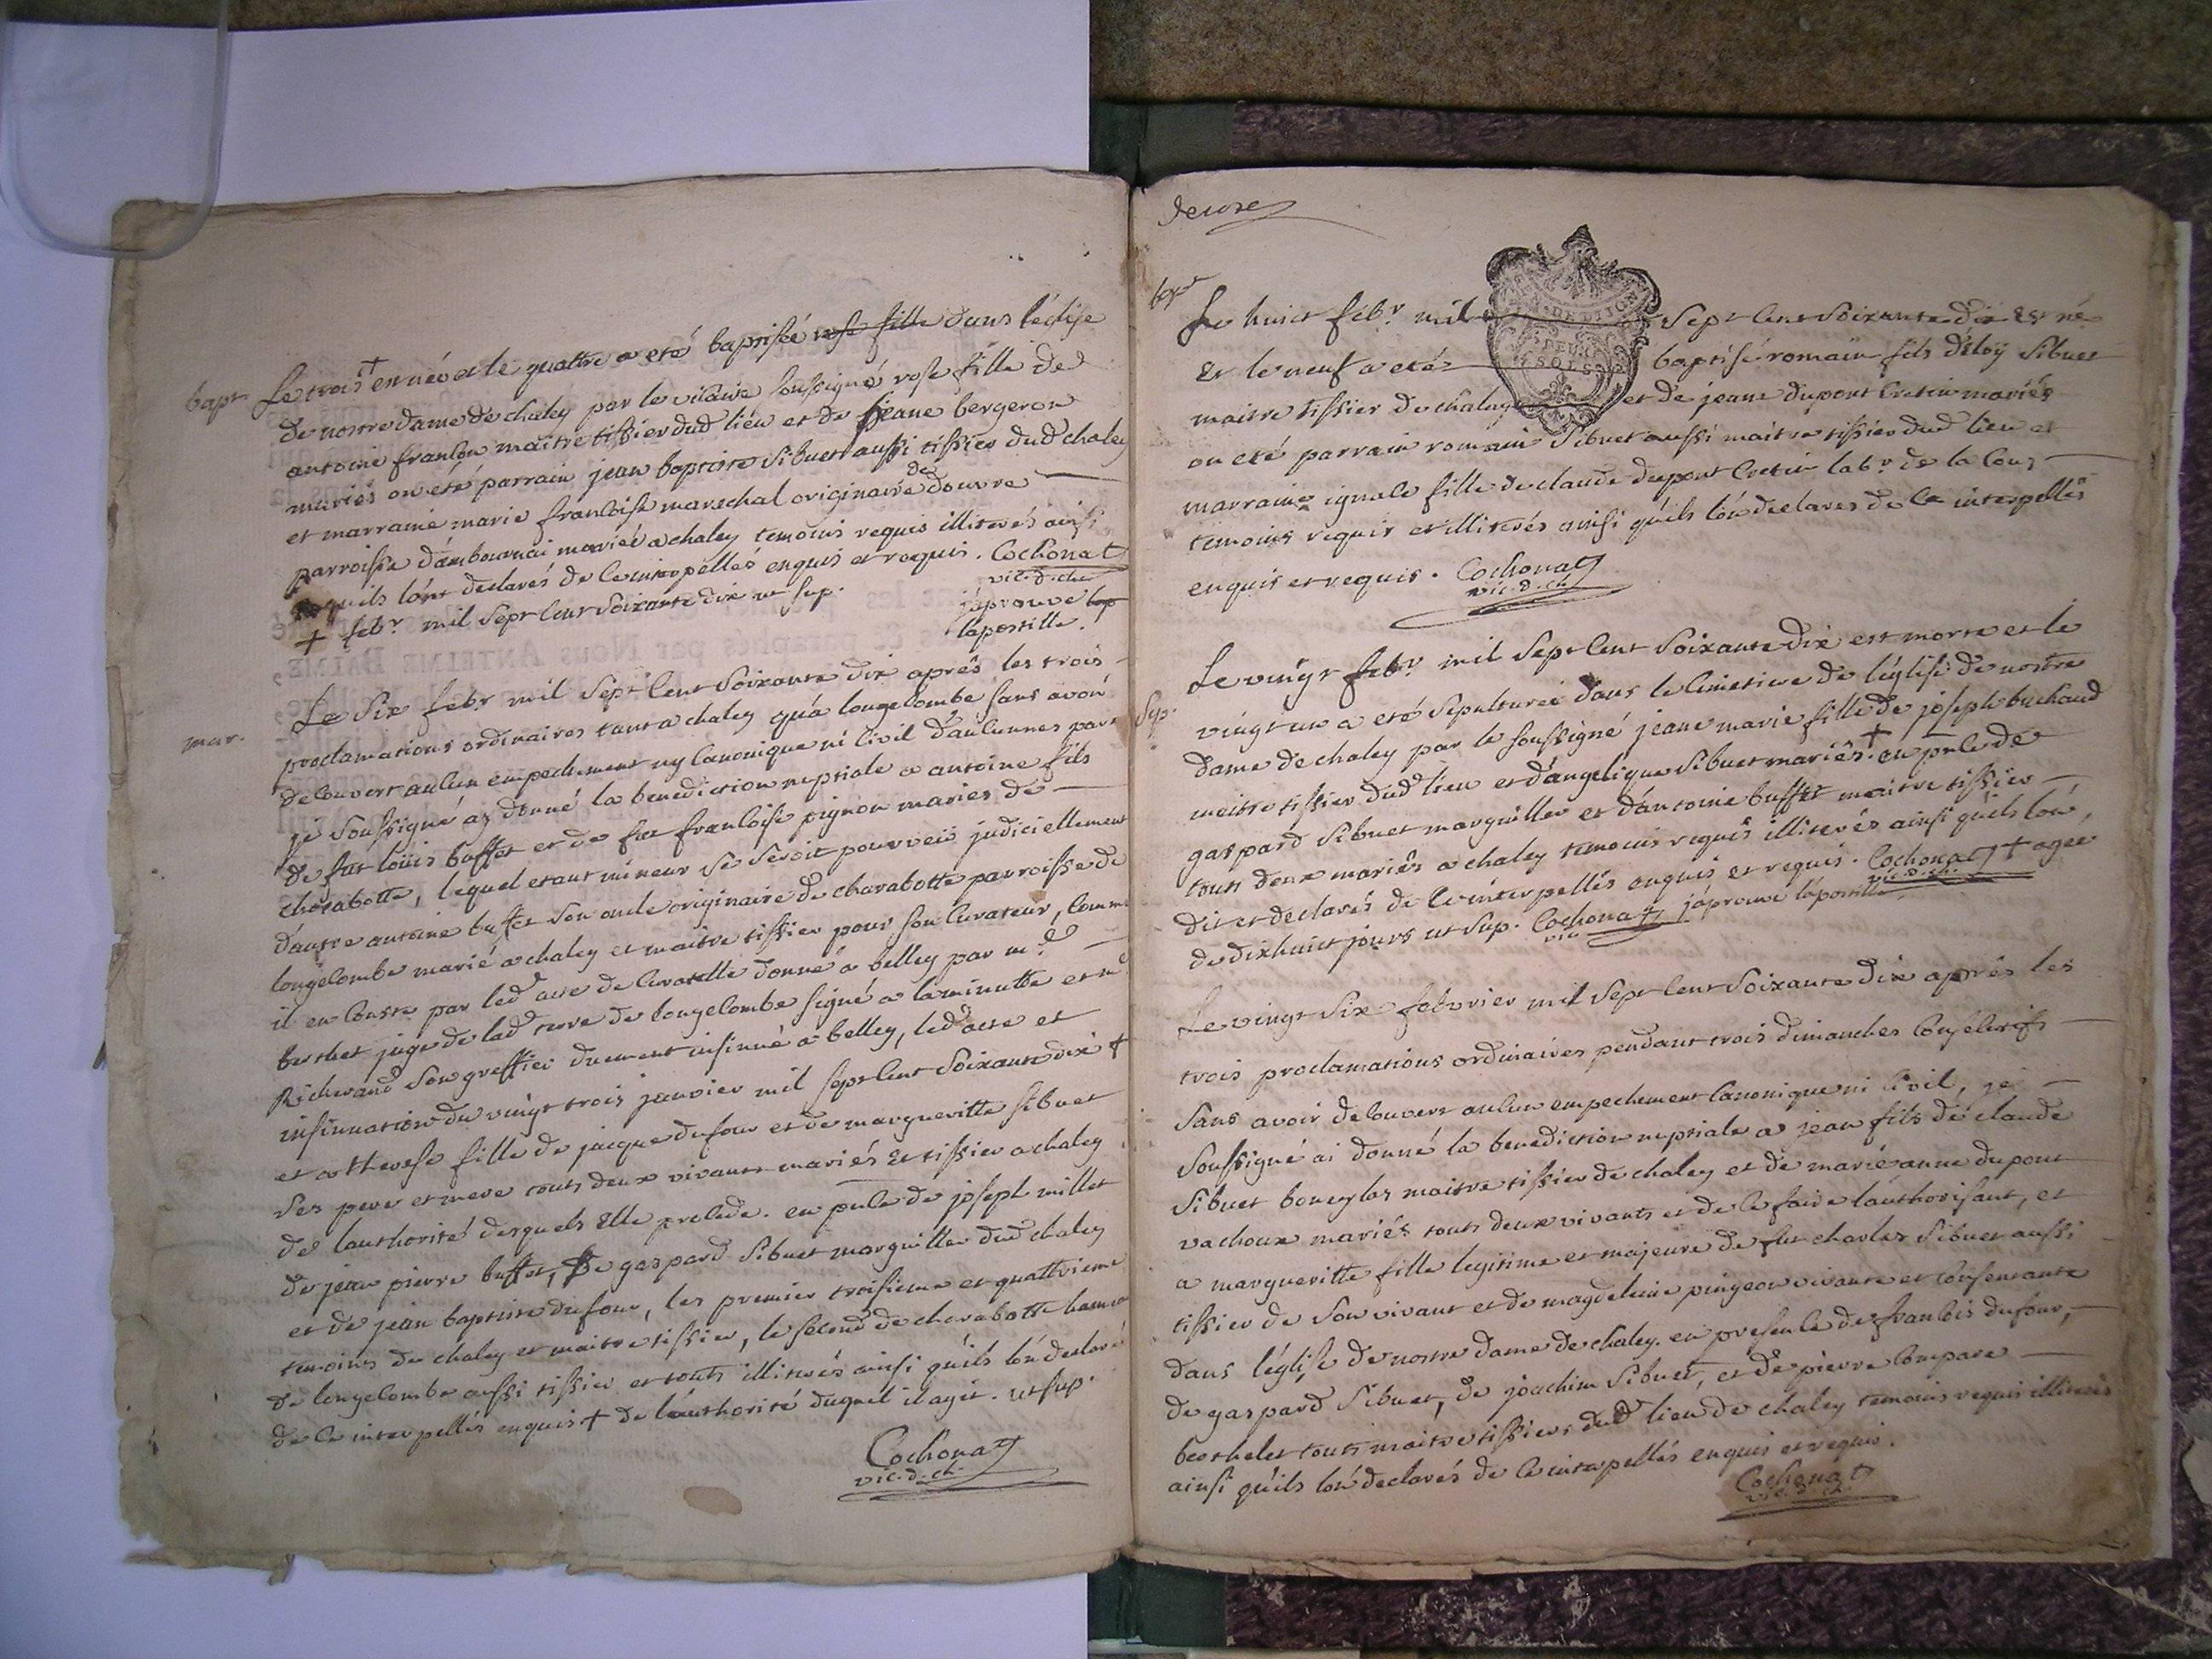 bapt Le trois + est née et le quattre a eté baptisée rose fille dans l'église
de nostre dame de chaley par le vicaire soussigné rose fille de
antoine françon maitre tissier dud lieu et de jeane bergeron
mariés on eté parrain jean baptiste sibuet aussi tissier dud chaley
et marraine marie francoise mareschal originaire de douvre
parroisse d'ambournai mariée a chaley temoins requis illiterés ainsi
quils l'ont declarés de ce interpellés enquis et requis. Cochonat
vic. d. ch.
+ febr. mil sept cent soixante dix ut sup. j'aprouve lap
lapostille.
mar. Le six febr mil sept cent soixante dix aprés les trois
proclamations ordinaires tant a chaley qu'a longecombe sans avoir
decouvert aucun empechement ny canonique ni civil d'aucunnes part
je soussigné ay donné la benediction nuptiale a antoine fils
de fut loüis buffet et de fut francoise pignon maries de
charabotte, lequel etant mineur se seroit pourveü judiciellement
d'autre antoine buffet son oncle originaire de charabotte parroisse de
longecombe marié a chaley et maitre tissier pour son curateur, comme
il en conste par led acte de curatelle donné a belley par m.e
berthet juge de lad terre de longecombe signé a la minutte et m.e
Richerand son greffier duement insinué a belley, led acte et
insinuation du vingt trois janvier mil sept cent soixante dix +
et a therese fille de jacque dufour et de margueritte sibuet
ses pere et mere touts deux vivants mariés et tissier a chaley
de l'authorité desquels elle procede. en pnce de joseph millet
de jean pierre buffet, de gaspard sibuet marguiller dud chaley
et de jean baptiste dufour, les premier troisieme et quattrieme
temoins de chaley et maitre tissier, le second de charabotte hameau
de longecombe aussi tissier et touts illiterés ainsi qu'ils l'on declaré
de ce interpellés enquis + de l'authorité duquel il agit. ut sup.
Cochonat
vic. d. ch.
deuxe
bapt
Le huict febr. mil sept cent soixante dix est né
et le neuf a eté baptisé romain fils d'eloÿ sibuet
DE DIJON
DEUX
SOLS
maitre tissier de chaley et de jeane dupont cretin mariés
on eté parrain romain sibuet aussi maitre tissier dud lieu et
marraine ignace fille de claude dupont cretin labr. de la cous
temoins requis et illiterés ainsi qu'ils l'on declares de ce interpellés
enquis et requis. Cochonat
vic. d. ch.
sep. Le vingt febr. mil sept cent soixante dix est morte et le
vingt un a eté sepulturée dans le cimetiere de l'église de nostre
dame de chaley par le soussigné jeane marie fille de joseph buchaud
maitre tissier dud lieu et d'angelique sibuet mariés + en pnce de
gaspard sibuet marguiller et d'antoine buffet maitre tissier
touts deux mariés a chaley temoins requis illiterés ainsi qu'ils l'on
dit et declarés de ce interpellés enquis et requis. Cochonat + agée
vic. d. ch.
de dix huict jours ut sup. Cochonat j'aprouve l'apostille
vic
Le vingt six febvrier mil sept cent soixante dix aprés les
trois proclamations ordinaires pendant trois dimanches consecutifs
sans avoir decouvert aucun empechement canonique ni civil, je
soussigné ai donné la benediction nuptiale a jean fils de claude
sibuet maitre tissier de chaley et de marie anne dupont
vachoux mariés touts deux vivants et de ce faire l'authorisant, et
a margueritte fille legitime et majeure de fut charles sibuet aussi
tissier de son vivant et de magdeleine pingeon vivante et consentante
dans l'église de nostre dame de chaley. en presence de francois dufour,
de gaspard sibuet, de joachim sibuet, et de pierre compare
berthelet touts maitre tissiers dud lieu de chaley temoins requis illiterés
ainsi qu'ils l'on declarés de ce interpellés enquis et requis.
Cochonat
vic. d. ch.